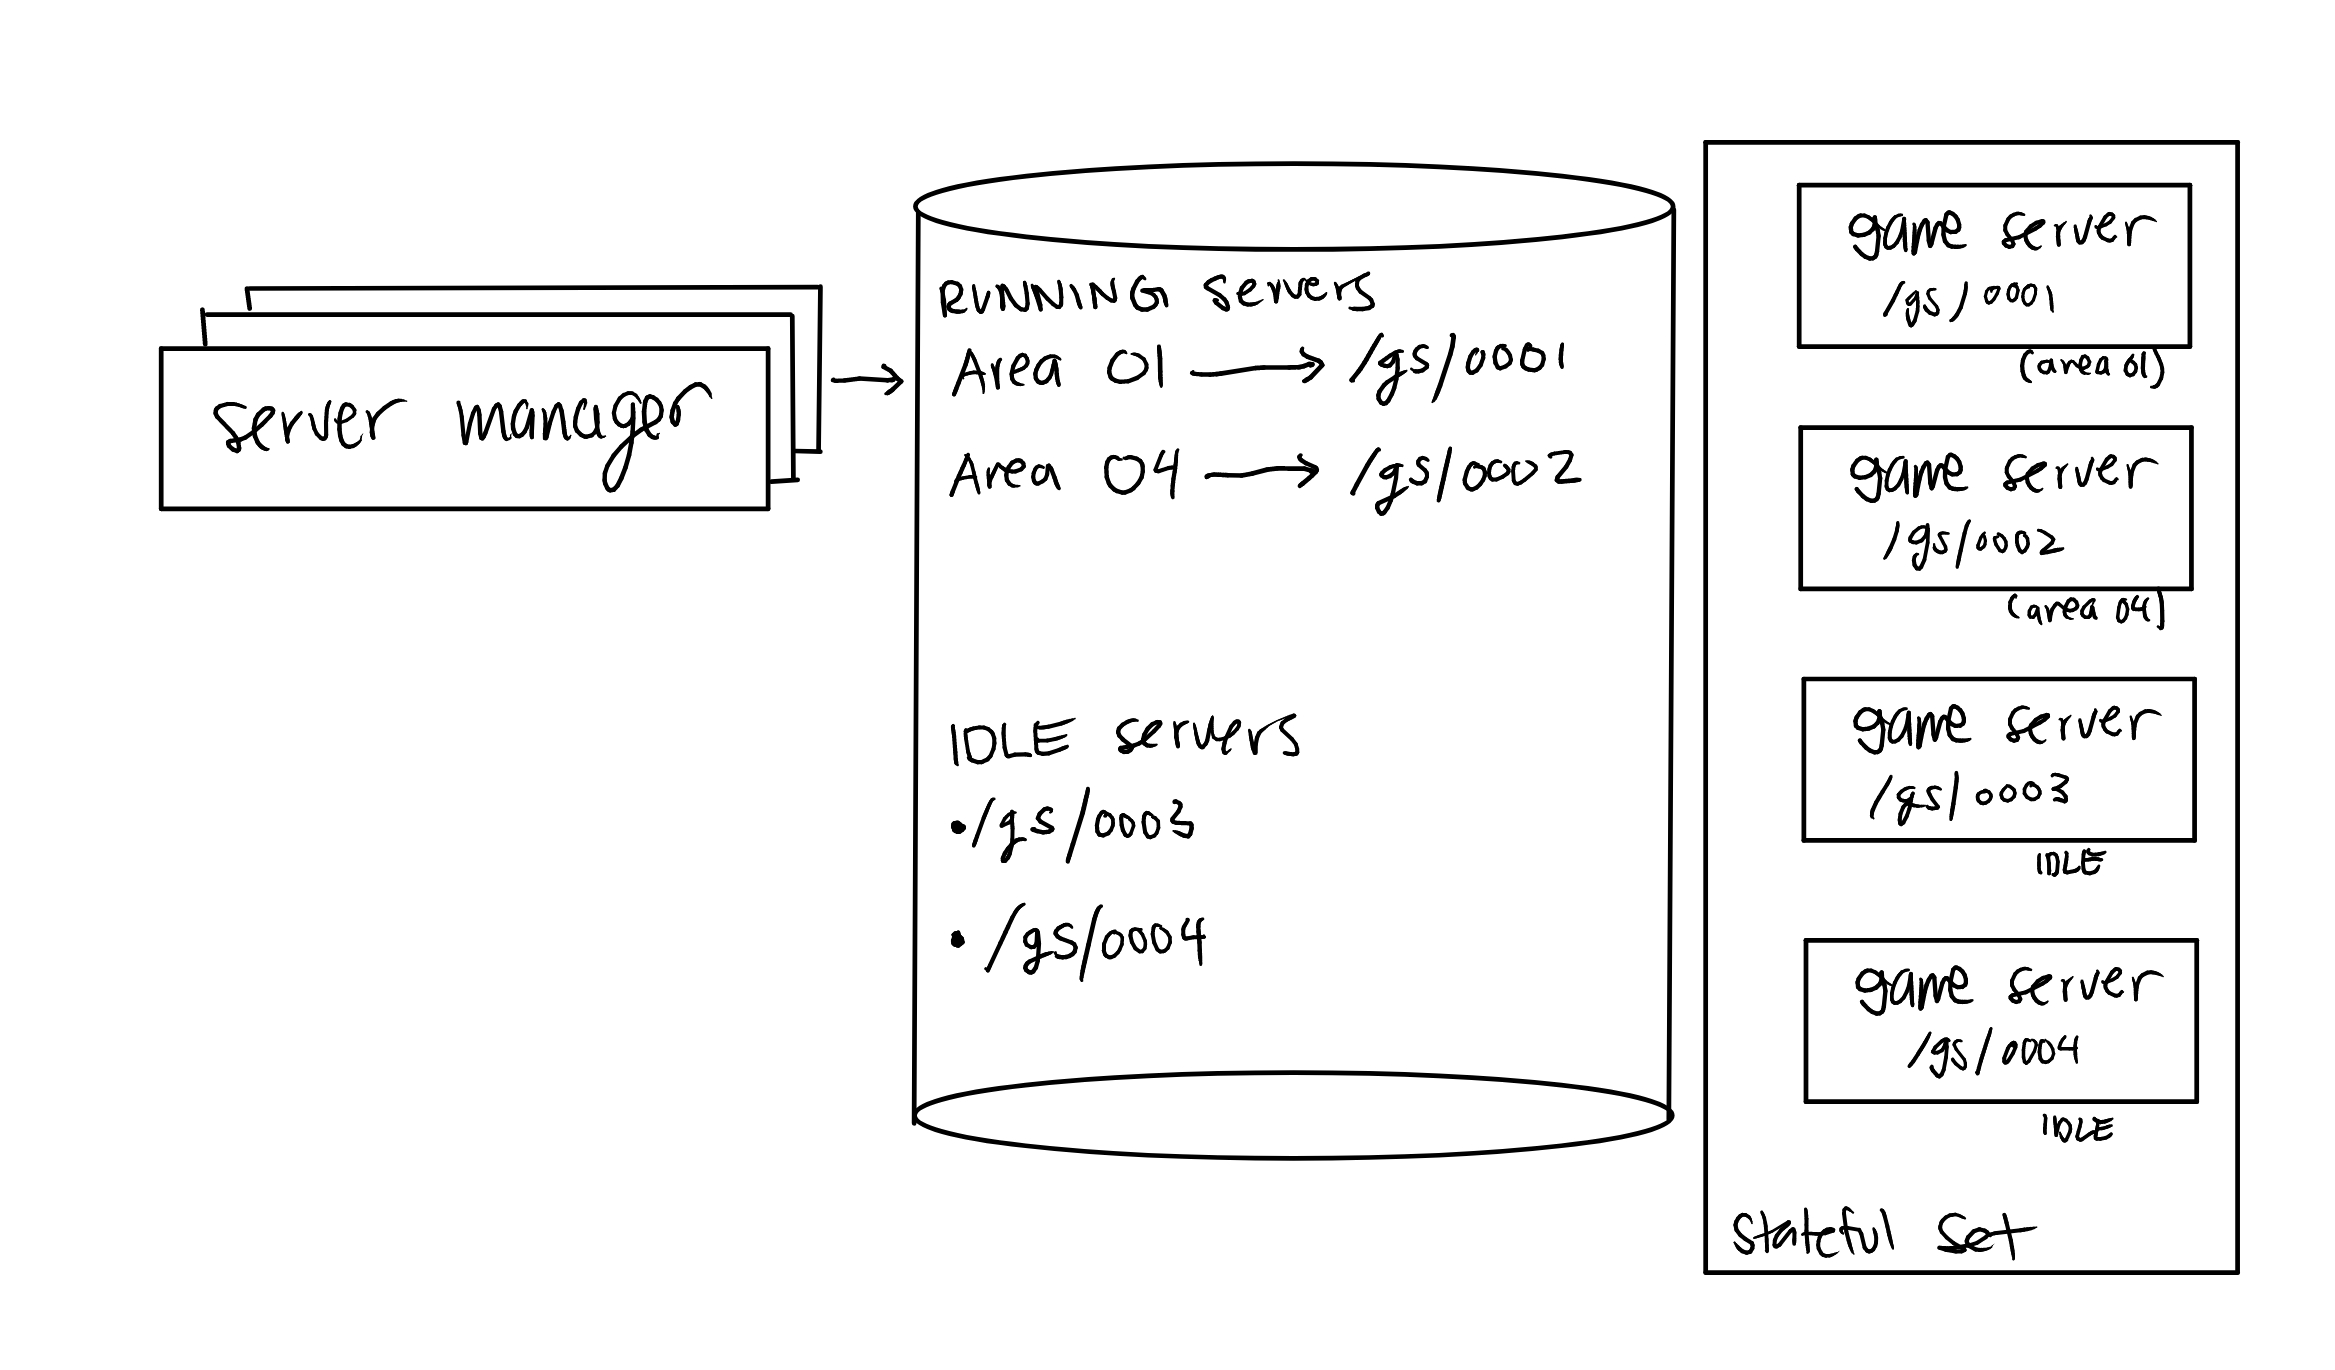 server manager
RUNNING servers
Area 01 → /gs/0001
Area 04 → /gs/0002
IDLE servers
• /gs/0003
• /gs/0004
game server
/gs/0001
(area 01)
game server
/gs/0002
(area 04)
game server
/gs/0003
IDLE
game server
/gs/0004
IDLE
Stateful Set